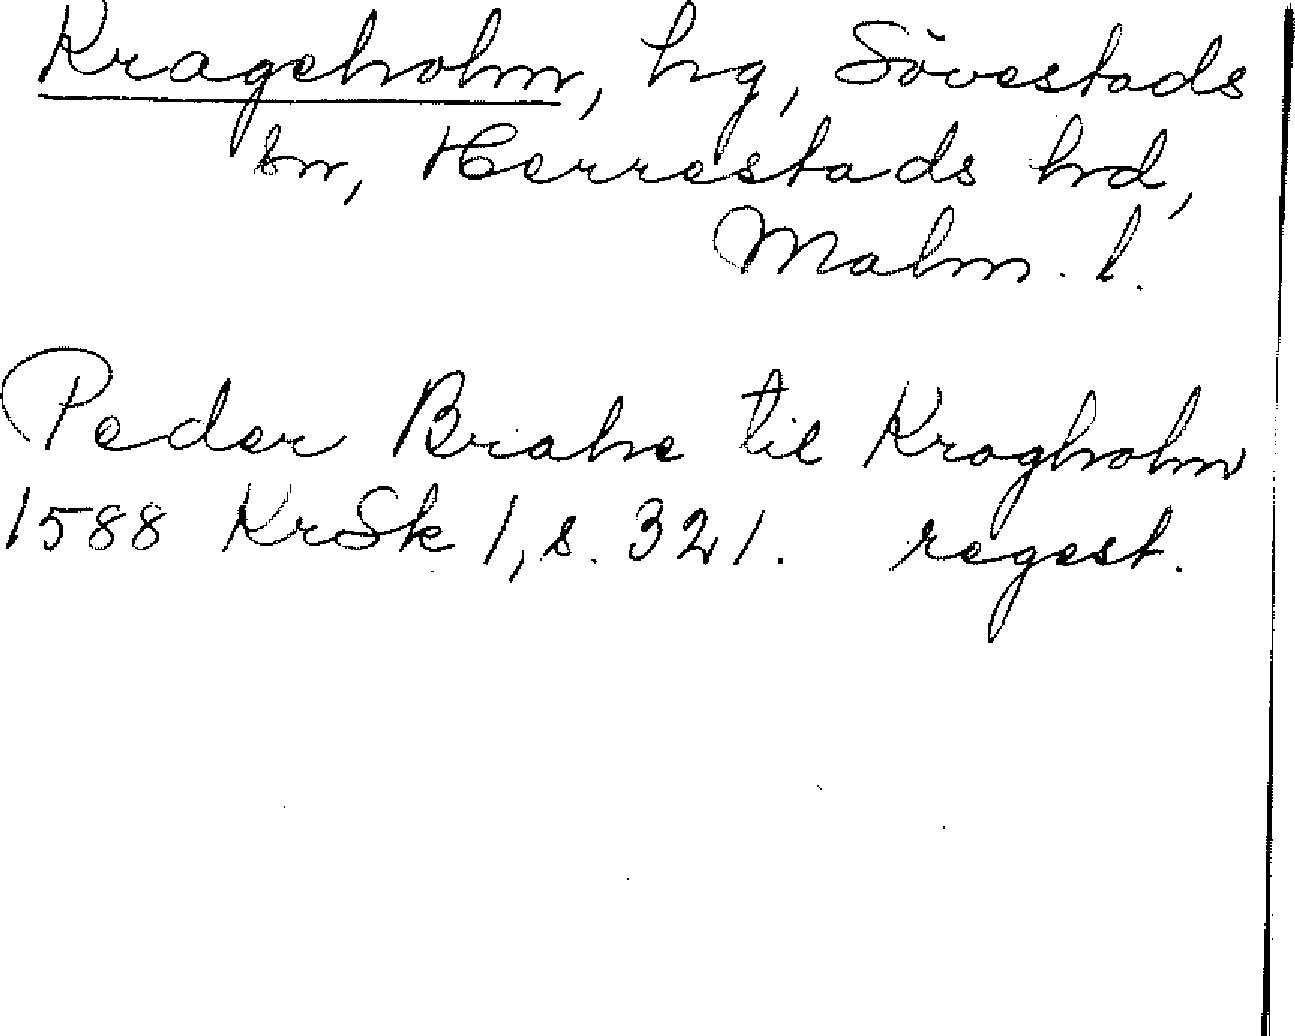 Krageholm, hg, Sövestads
sn, Herrestads hrd,
Malm. l.
Peder Brahe til Kragholm
1588 KrSk 1, s. 321. regest.